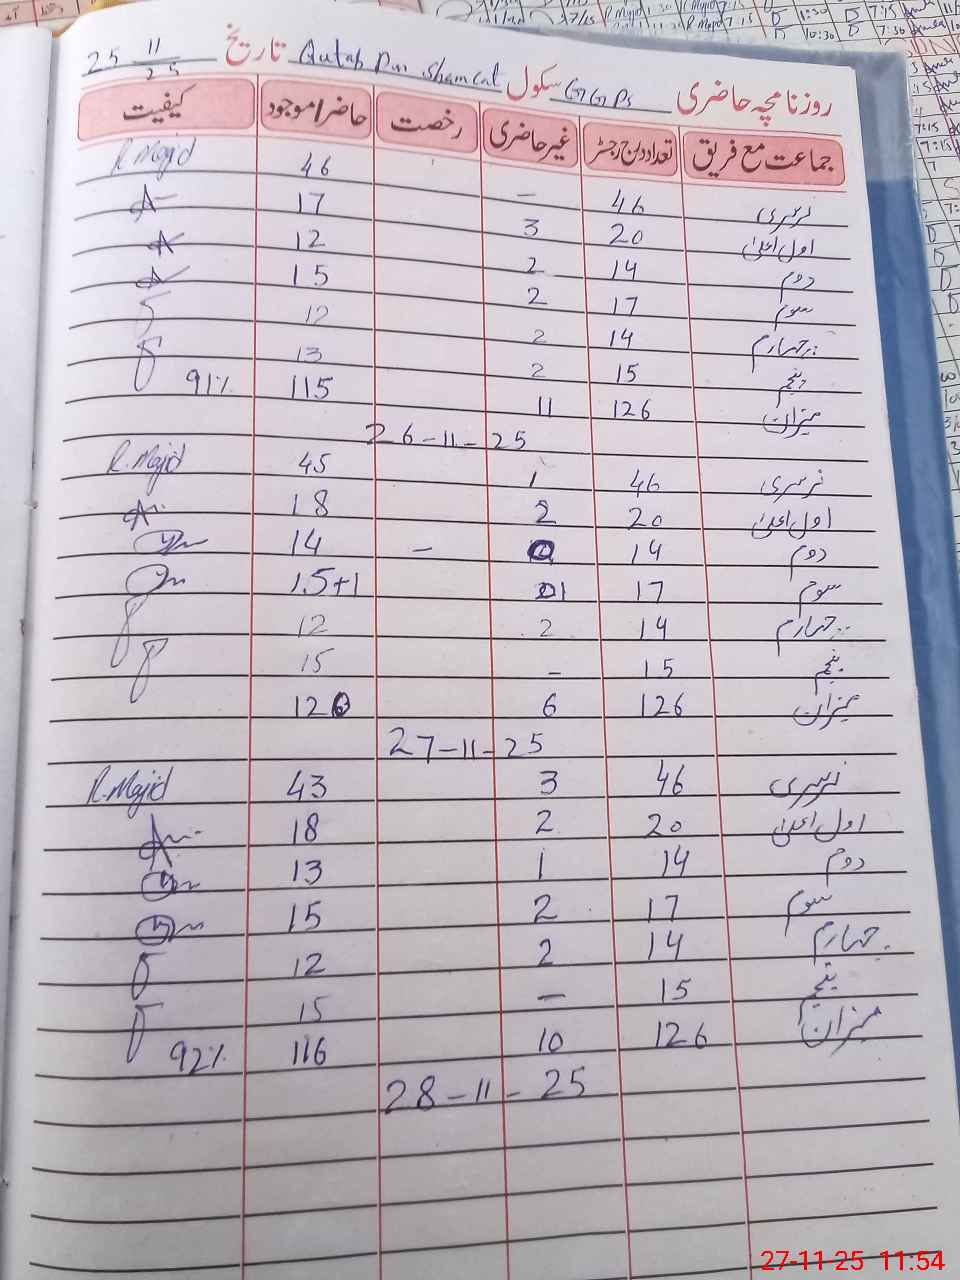 روزنامچہ حاضری GGPS سکول Qutab Pur Shamcat تاریخ 25 11/25
جماعت مع فریق تعداد درج رجسٹر غیر حاضری رخصت حاضر/موجود کیفیت
نرسری 46 – 46 R.Majid
اول اعلیٰ 20 3 17
دوم 14 2 12
سوم 17 2 15
چہارم 14 2 12
پنجم 15 2 13
میزان 126 11 115 91%
26-11-25
نرسری 46 1 45 R.Majid
اول اعلیٰ 20 2 18
دوم 14 0 – 14
سوم 17 01 15+1
چہارم 14 2 12
پنجم 15 – 15
میزان 126 6 120
27-11-25
نرسری 46 3 43 R.Majid
اول اعلیٰ 20 2 18
دوم 14 1 13
سوم 17 2 15
چہارم 14 2 12
پنجم 15 – 15
میزان 126 10 116 92%
28-11-25
27-11-25 11:54